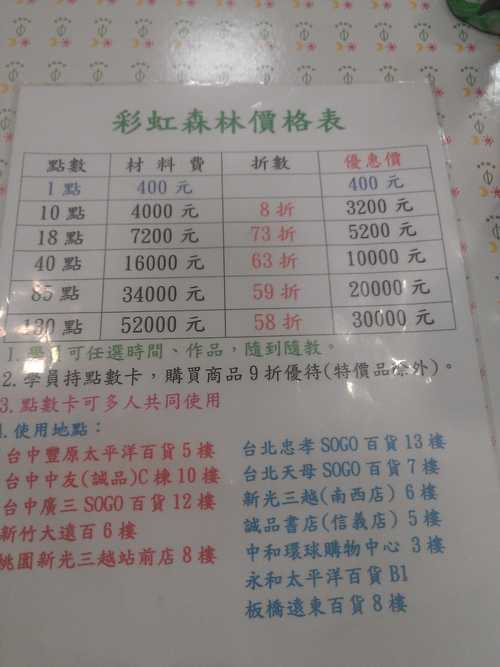 彩虹森林價格表
點數 材料費 折數 優惠價
1 點 400 元 400 元
10 點 4000 元 8 折 3200 元
18 點 7200 元 73 折 5200 元
40 點 16000 元 63 折 10000 元
85 點 34000 元 59 折 20000 元
130 點 52000 元 58 折 30000 元
1. 學員可任選時間、作品，隨到隨教。
2. 學員持點數卡，購買商品 9 折優待(特價品除外)。
3. 點數卡可多人共同使用
4. 使用地點：
台中豐原太平洋百貨 5 樓
台中中友(誠品)C 棟 10 樓
台中廣三 SOGO 百貨 12 樓
新竹大遠百 6 樓
桃園新光三越站前店 8 樓
台北忠孝 SOGO 百貨 13 樓
台北天母 SOGO 百貨 7 樓
新光三越(南西店) 6 樓
誠品書店(信義店) 5 樓
中和環球購物中心 3 樓
永和太平洋百貨 B1
板橋遠東百貨 8 樓